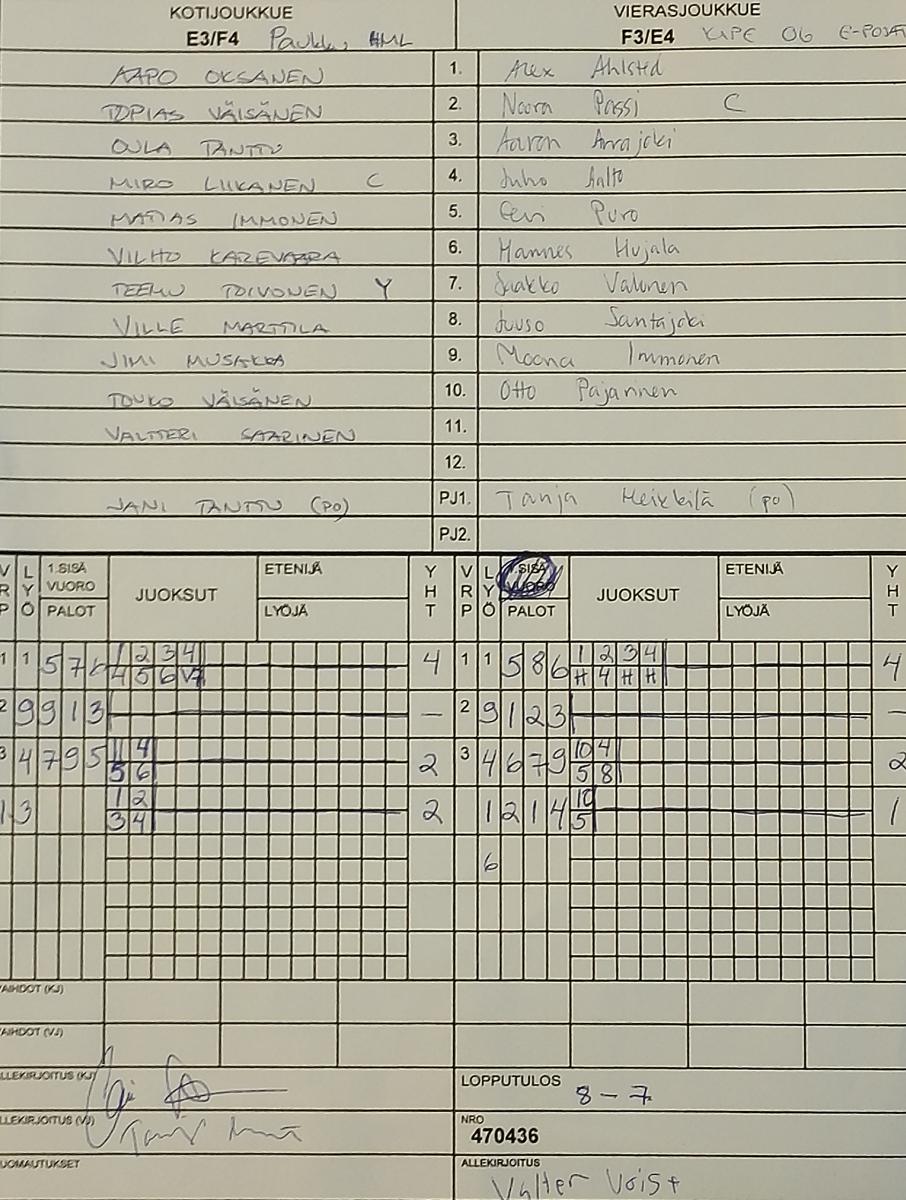 KOTIJOUKKUE VIERASJOUKKUE
E3/F4 Paukku, HML F3/E4 KIPE 06 E-POJAT
AAPO OKSANEN 1. Alex Ahlsted
TOPIAS VÄISÄNEN 2. Noora Passi C
OULA TANTTU 3. Aaron Arrajoki
MIRO LIIKANEN C 4. Juho Aalto
MATIAS IMMONEN 5. Eevi Puro
VILHO KAREVAARA 6. Hannes Hujala
TEEMU TOIVONEN Y 7. Jaakko Valonen
VILLE MARTTILA 8. Juuso Santajoki
JIMI MUSAKKA 9. Moona Immonen
TOUKO VÄISÄNEN 10. Otto Pajarinen
VALTTERI SAARINEN 11.
12.
JANI TANTTU (PO) PJ1. Tanja Heikkilä (po)
PJ2.
VRP LYÖ 1.SISÄ VUORO PALOT JUOKSUT ETENIJÄ LYÖJÄ YHT VRP LYÖ 1.SISÄ VUORO PALOT JUOKSUT ETENIJÄ LYÖJÄ YHT
1 1 5 7 6 1 2 3 4 4 1 1 5 8 6 1 2 3 4 4
4 5 6 V7 H 4 H H
2 9 9 1 3 — 2 9 1 2 3 —
3 4 7 9 5 11 4 2 3 4 6 7 9 10 4 2
5 6 5 8
1 3 1 2 2 1 2 1 4 10 1
3 4 5
6
VAIHDOT (KJ)
VAIHDOT (VJ)
ALLEKIRJOITUS (KJ) LOPPUTULOS 8 – 7
ALLEKIRJOITUS (VJ) NRO
470436
HUOMAUTUKSET ALLEKIRJOITUS
Valter